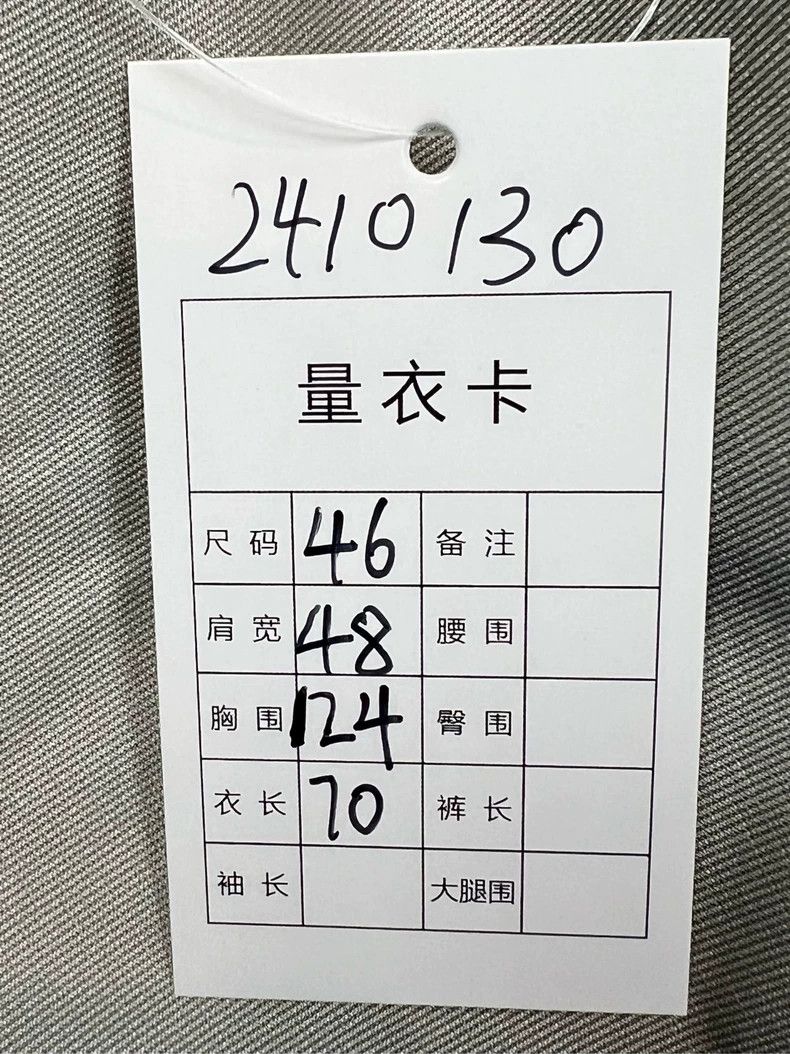 2410130
量衣卡
尺码 46 备注
肩宽 48 腰围
胸围 124 臀围
衣长 70 裤长
袖长 大腿围